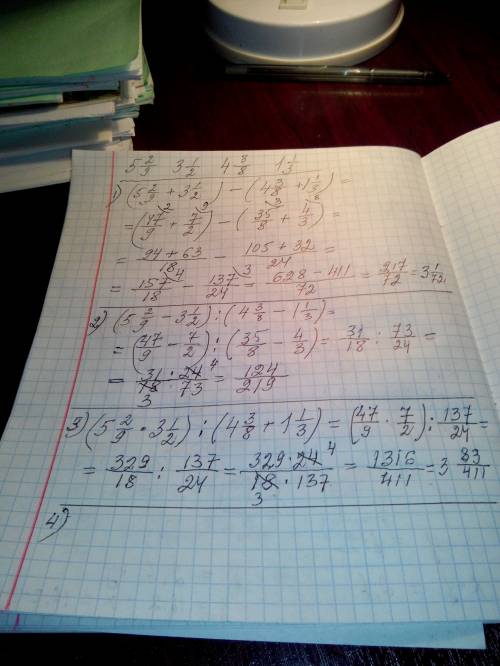 5 2/9  3 1/2  4 3/8  1 1/3
1) (5 2/9 + 3 1/2) − (4 3/8 + 1 1/3) =
= (47/9 + 7/2) − (35/8 + 4/3) =
= (94 + 63)/18 − (105 + 32)/24 =
= 157/18 − 137/24 = (628 − 411)/72 = 217/72 = 3 1/72
2) (5 2/9 − 3 1/2) : (4 3/8 − 1 1/3) =
= (47/9 − 7/2) : (35/8 − 4/3) = 31/18 : 73/24 =
= (31 · 24 4)/(18 3 · 73) = 124/219
3) (5 2/9 · 3 1/2) : (4 3/8 + 1 1/3) = (47/9 · 7/2) : 137/24 =
= 329/18 : 137/24 = (329 · 24 4)/(18 3 · 137) = 1316/411 = 3 83/411
4)